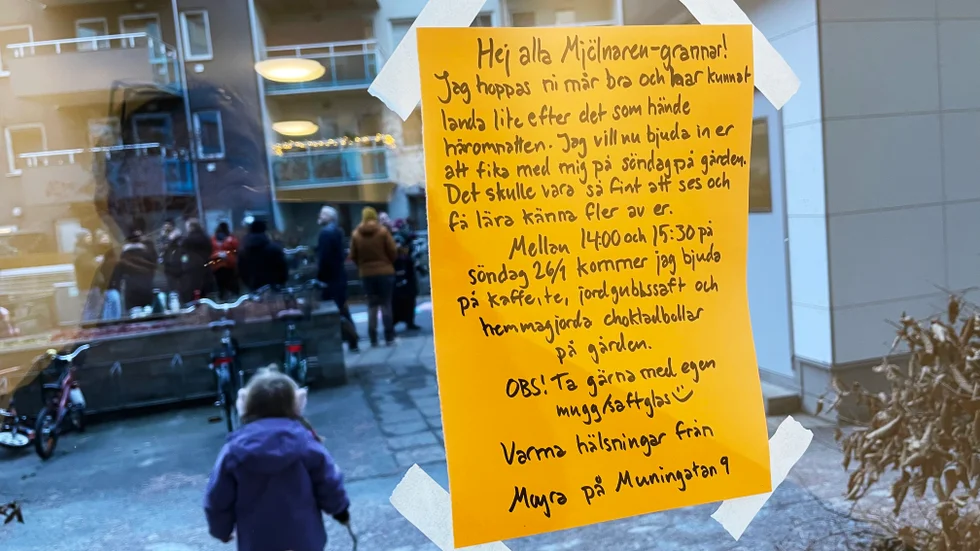 Hej alla Mjölnaren-grannar!
Jag hoppas ni mår bra och har kunnat
landa lite efter det som hände
häromnatten. Jag vill nu bjuda in er
att fika med mig på söndag på gården.
Det skulle vara så fint att ses och
få lära känna fler av er.
Mellan 14:00 och 15:30 på
söndag 26/1 kommer jag bjuda
på kaffe, te, jordgubbssaft och
hemmagjorda chokladbollar
på gården.
OBS! Ta gärna med egen
mugg/saftglas
Varma hälsningar från
Mayra på Muningatan 9